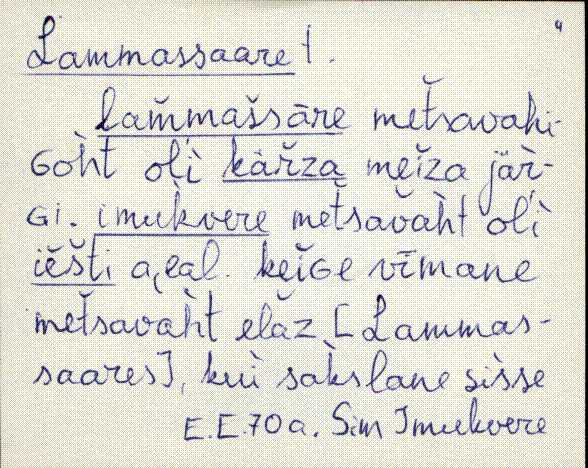 4
Lammassaare t.
lam̆mašsāre metšavahi-
Goh̀t oĺi kàřza mĕiza jäŕ-
Gi. imukvere metšavàht oĺi
iĕšti a̭eal. kĕiGe vīmane
metšavàht elăz [Lammas-
saares], kui sàkslane sìsse
E.E. 70 a. Sim Imukvere